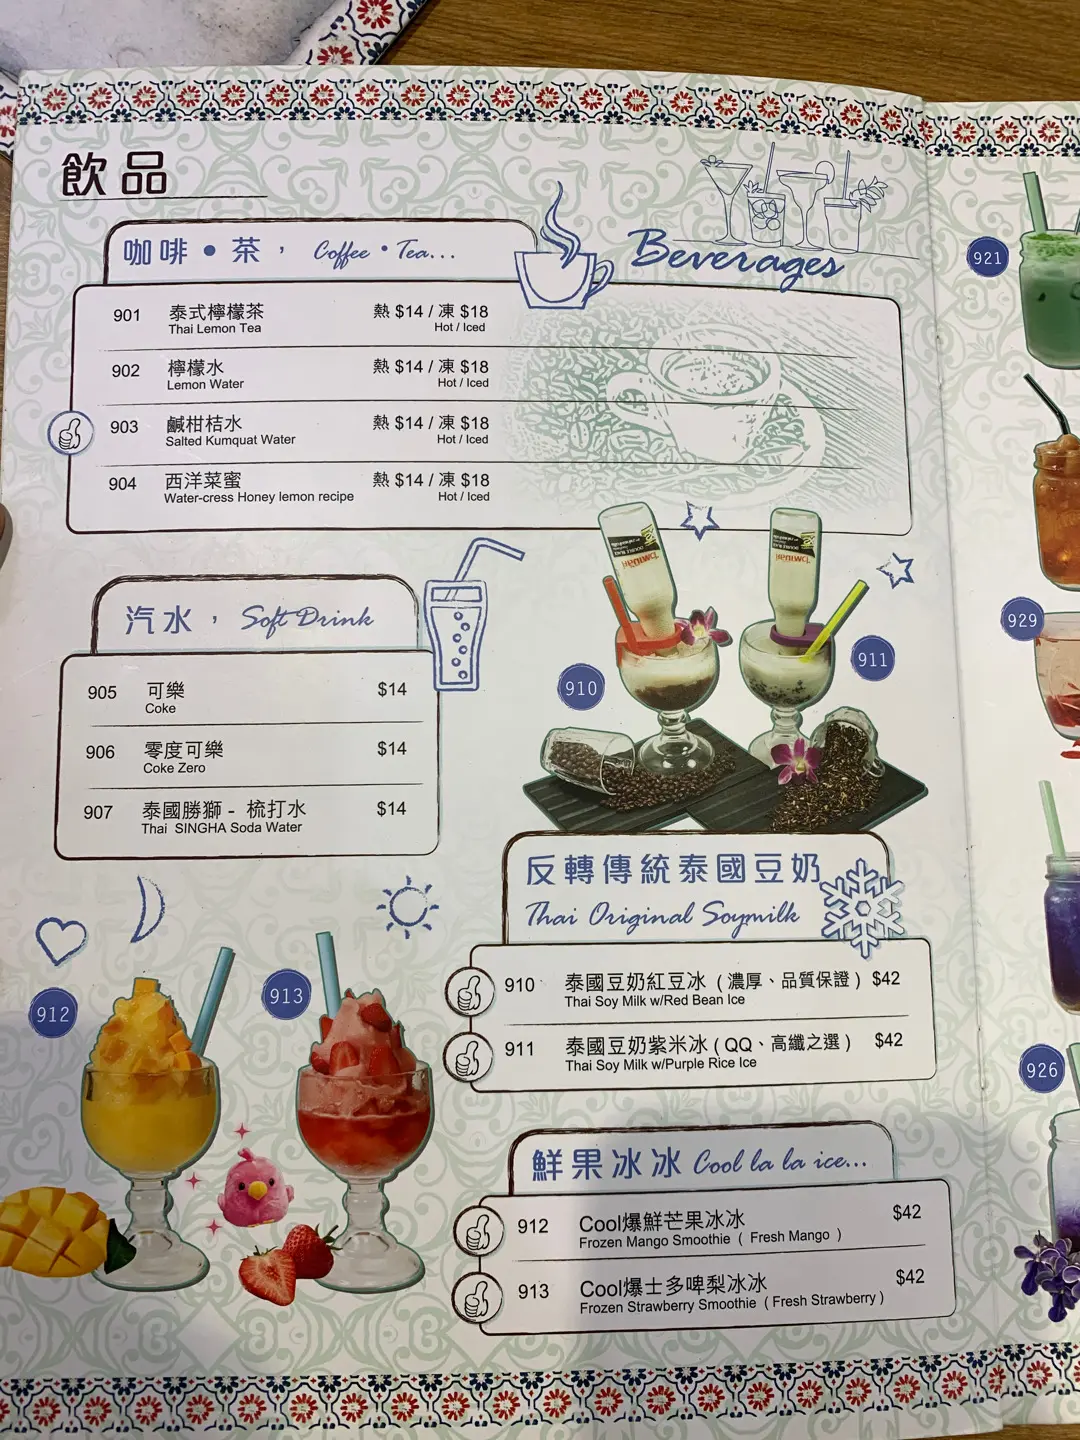 飲品
咖啡•茶， Coffee•Tea...
Beverages
901 泰式檸檬茶 熱 $14 / 凍 $18
Thai Lemon Tea Hot / Iced
902 檸檬水 熱 $14 / 凍 $18
Lemon Water Hot / Iced
903 鹹柑桔水 熱 $14 / 凍 $18
Salted Kumquat Water Hot / Iced
904 西洋菜蜜 熱 $14 / 凍 $18
Water-cress Honey lemon recipe Hot / Iced
汽水， Soft Drink
905 可樂 $14
Coke
906 零度可樂 $14
Coke Zero
907 泰國勝獅 - 梳打水 $14
Thai SINGHA Soda Water
910
911
反轉傳統泰國豆奶
Thai Original Soymilk
910 泰國豆奶紅豆冰（濃厚、品質保證）$42
Thai Soy Milk w/Red Bean Ice
911 泰國豆奶紫米冰（QQ、高纖之選）$42
Thai Soy Milk w/Purple Rice Ice
912
913
鮮果冰冰 Cool la la ice...
912 Cool爆鮮芒果冰冰 $42
Frozen Mango Smoothie ( Fresh Mango )
913 Cool爆士多啤梨冰冰 $42
Frozen Strawberry Smoothie ( Fresh Strawberry )
921
929
926